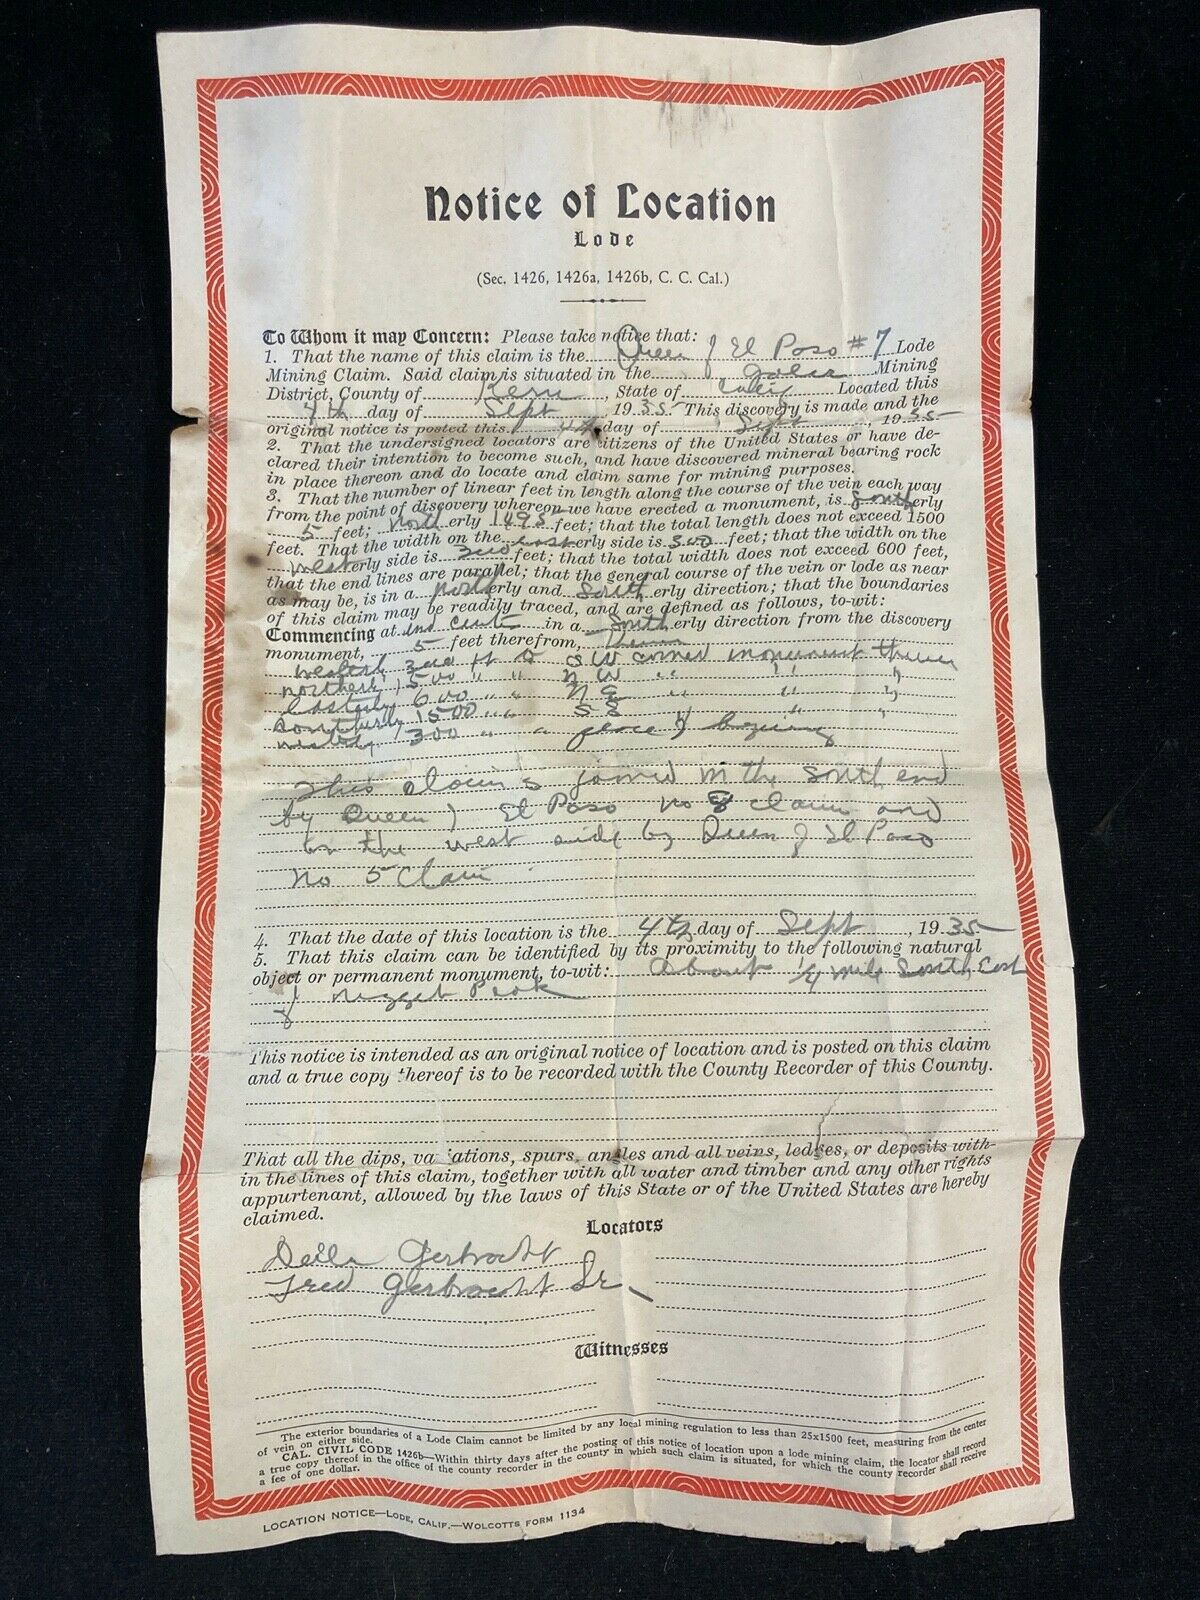 Notice of Location
Lode
(Sec. 1426, 1426a, 1426b, C. C. Cal.)
To Whom it may Concern: Please take notice that:
1. That the name of this claim is the Queen of El Paso #7 Lode
Mining Claim. Said claim is situated in the Goler Mining
District, County of Kern, State of Calif Located this
4th day of Sept, 1935 This discovery is made and the
original notice is posted this 4th day of Sept, 1935
2. That the undersigned locators are citizens of the United States or have de-
clared their intention to become such, and have discovered mineral bearing rock
in place thereon and do locate and claim same for mining purposes.
3. That the number of linear feet in length along the course of the vein each way
from the point of discovery whereon we have erected a monument, is Southerly
5 feet; Northerly 1495 feet; that the total length does not exceed 1500
feet. That the width on the easterly side is 300 feet; that the width on the
westerly side is 300 feet; that the total width does not exceed 600 feet,
that the end lines are parallel; that the general course of the vein or lode as near
as may be, is in a northerly and Southerly direction; that the boundaries
of this claim may be readily traced, and are defined as follows, to-wit:
Commencing at end cent in a Southerly direction from the discovery
monument, 5 feet therefrom,
westerly 300 ft to S W corner monument thence
northerly 1500 " " N W " " "
Easterly 600 " " N E " " "
Southerly 1500 " " S E " " "
westerly 300 " " place of begining
This claim is joined on the South end
by Queen of El Paso No 8 claim and
on the west side by Queen of El Paso
No 5 Claim
4. That the date of this location is the 4th day of Sept, 1935
5. That this claim can be identified by its proximity to the following natural
object or permanent monument, to-wit: About 1/4 mile South East
of Nugget Peak
This notice is intended as an original notice of location and is posted on this claim
and a true copy thereof is to be recorded with the County Recorder of this County.
That all the dips, variations, spurs, angles and all veins, ledges, or deposits with-
in the lines of this claim, together with all water and timber and any other rights
appurtenant, allowed by the laws of this State or of the United States are hereby
claimed.
Locators
Gerbracht
Fred Gerbracht Sr.
Witnesses
The exterior boundaries of a Lode Claim cannot be limited by any local mining regulation to less than 25x1500 feet, measuring from the center
of vein on either side.
CAL. CIVIL CODE 1426b—Within thirty days after the posting of this notice of location upon a lode mining claim, the locator shall record
a true copy thereof in the office of the county recorder in the county in which such claim is situated, for which the county recorder shall receive
a fee of one dollar.
LOCATION NOTICE—LODE, CALIF.—WOLCOTTS FORM 1134